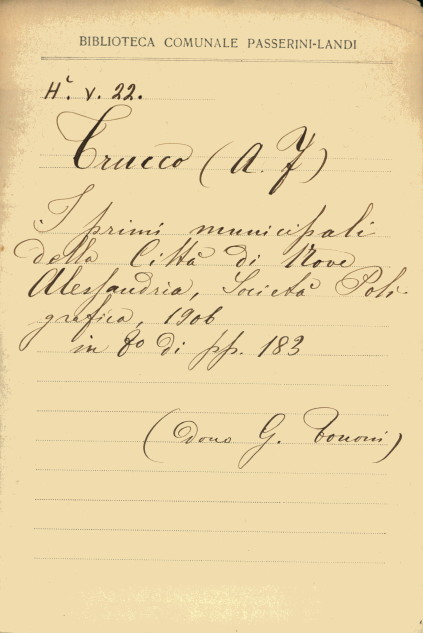 BIBLIOTECA COMUNALE PASSERINI-LANDI
Hª. v. 22.
Trucco (A. F)
I primi municipali
della Città di Nove
Alessandria, Società Poli-
grafica, 1906
in 8º di pp. 183
(dono G. Tononi)